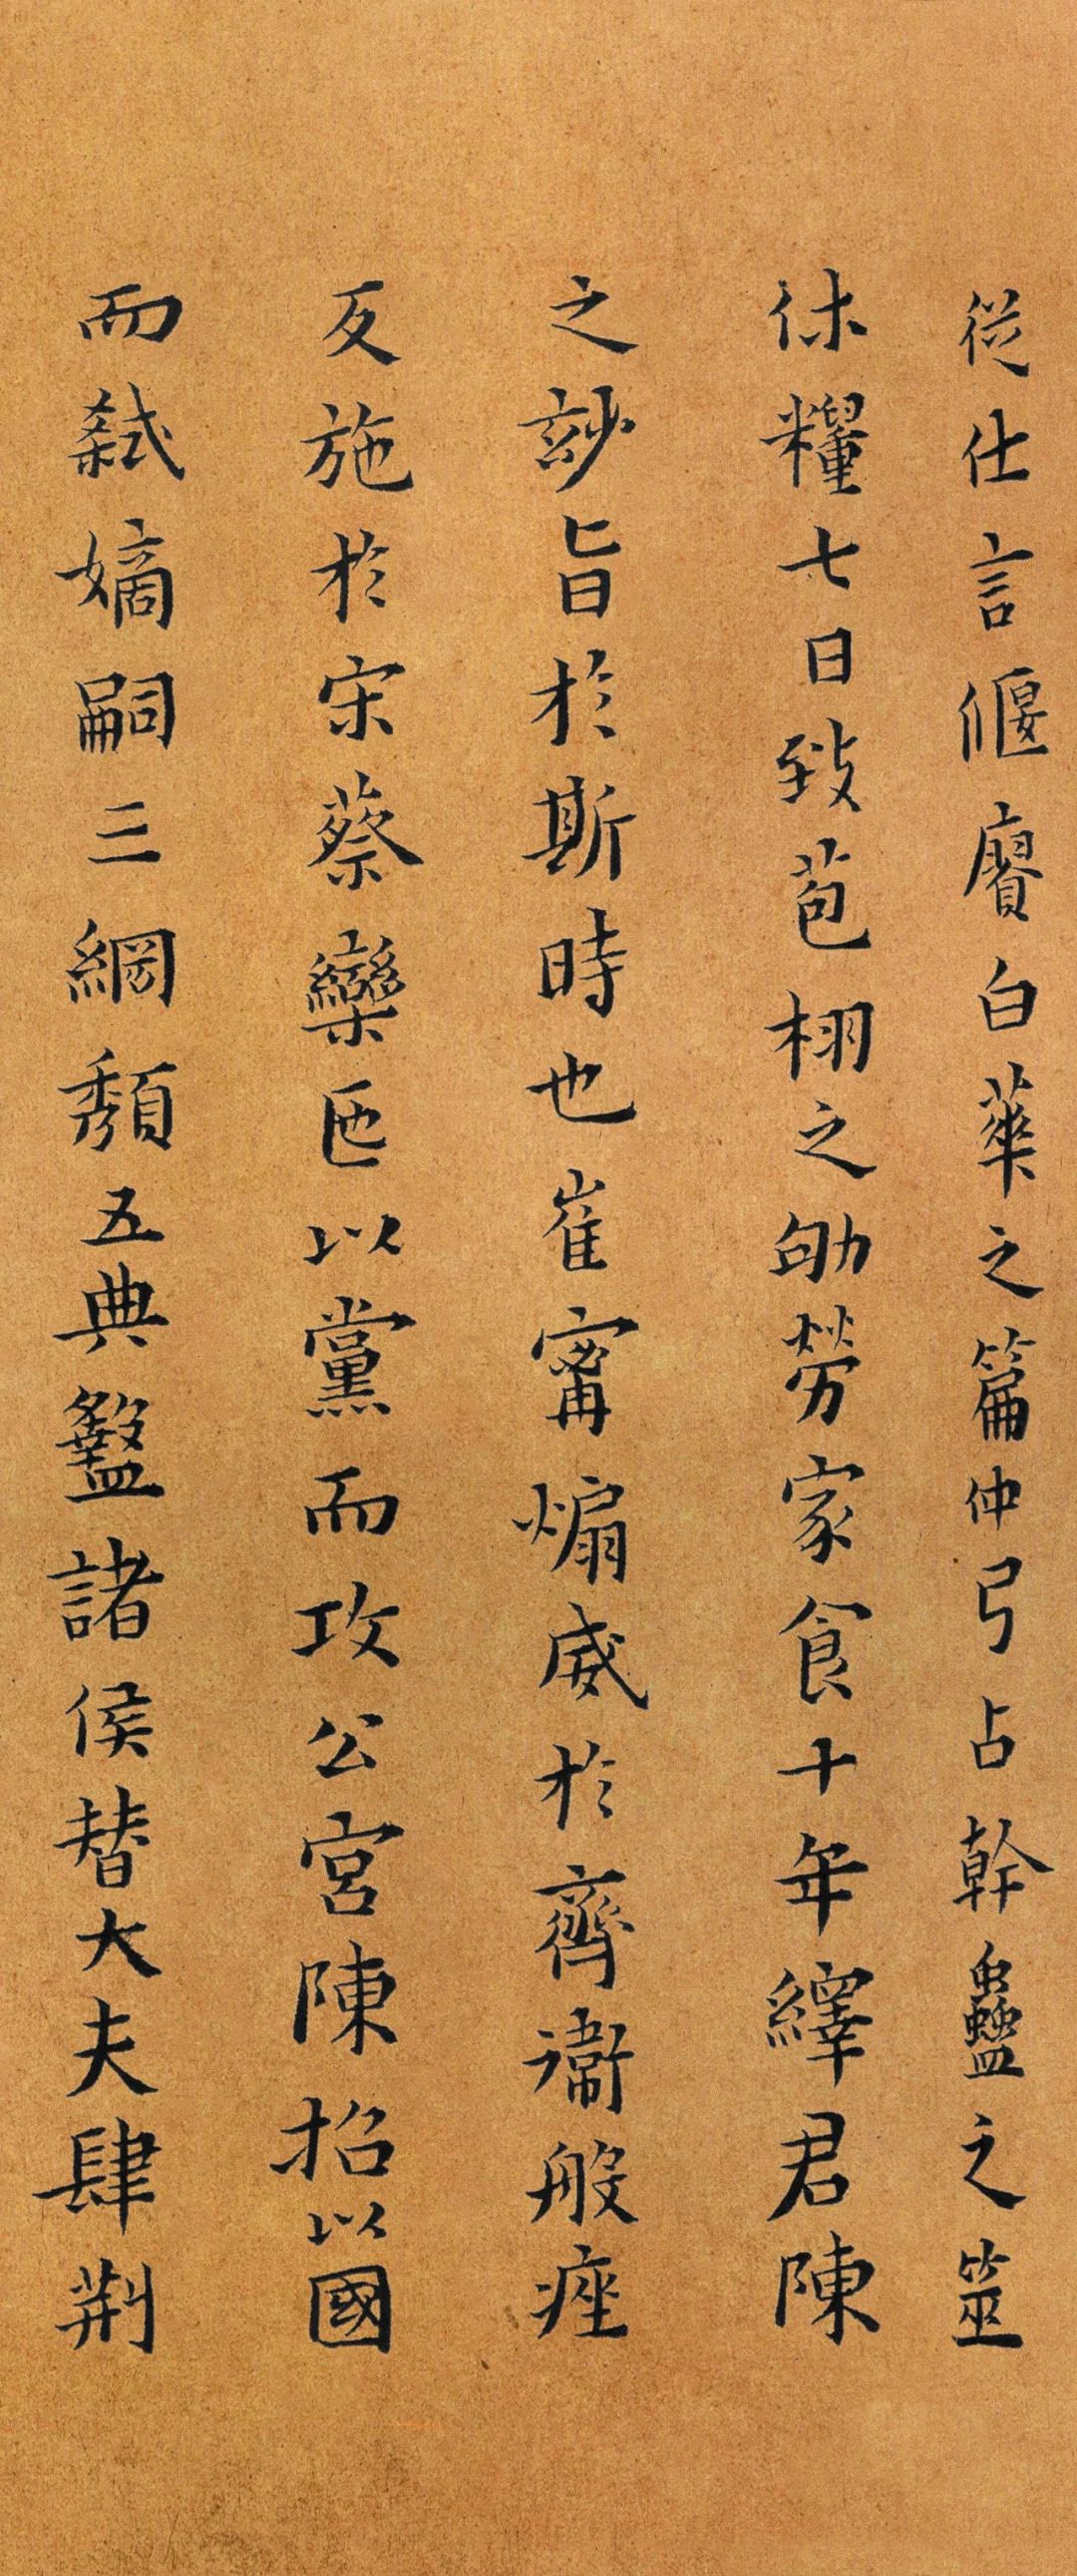 從仕言偃賡白華之篇仲弓占幹蠱之筮
休糧七日致苞栩之劬勞家食十年繹君陳
之玅旨於斯時也崔甯煽威於齊衞般痤
反施於宋蔡欒𠤷以黨而攻公宮陳招以國
而弑嫡嗣三綱頹五典盭諸侯替大夫肆荆